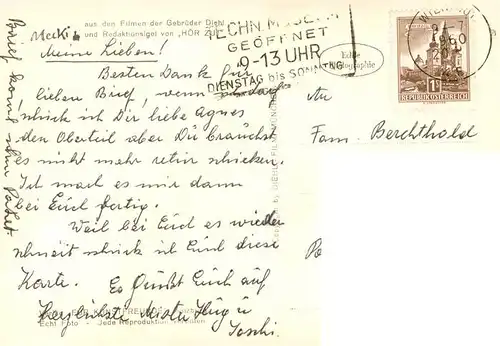 Mecki
aus den Filmen der Gebrüder Diehl
und Redaktionsigel von „HÖR ZU
Meine Lieben!
Besten Dank für
lieben Brief, wenn
schick ich Dir liebe Agnes
den Oberteil aber Du brauchst
es nicht mehr retur schicken.
Ich mach es mir dann
bei Euch fertig.
Weil bei Euch es wieder
schneit schick ich Euch diese
Karte. Es Grüßt Euch auf
Herzlichste
Joschi.
Echt Foto - Jede Reproduktion verboten
Brief kommt
Paket
TECHN. MUSEUM
GEÖFFNET
9-13 UHR
DIENSTAG bis SONNTAG
Echte
Photographie
WIEN
1960
REPUBLIK ÖSTERREICH
1S
An
Fam. Berchthold